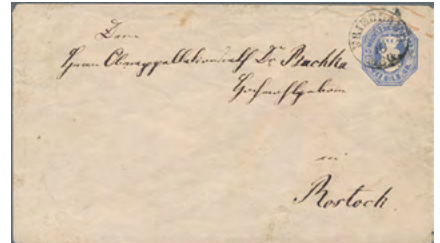 Dem
Herrn Oberappellationsrath Dr. Buchka
Hochwohlgeboren
in
Rostock.